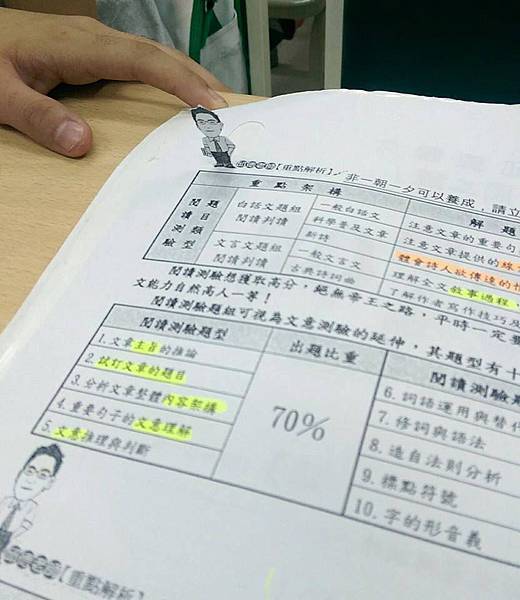 【重點解析】
非一朝一夕可以養成,請立
重點架構
解題
閱讀測驗
題目類型
白話文題組閱讀判讀
一般白話文
注意文章的重要句
科學普及文章
注意文章提供的線
新詩
體會詩人欲傳達的情
文言文題組閱讀判讀
一般文言文
理解全文敘事過程
古典詩詞曲
了解作者寫作技巧及
閱讀測驗想獲取高分,絕無帝王之路,平時一定要
文能力自然高人一等!
閱讀測驗題組可視為文意測驗的延伸,其題型有十
閱讀測驗題型
出題比重
閱讀測驗
1. 文章主旨的推論
2. 試訂文章的題目
3. 分析文章整體內容架構
4. 重要句子的文意理解
5. 文意推理與判斷
70%
6. 詞語運用與替代
7. 修詞與語法
8. 造自法則分析
9. 標點符號
10. 字的形音義
【重點解析】